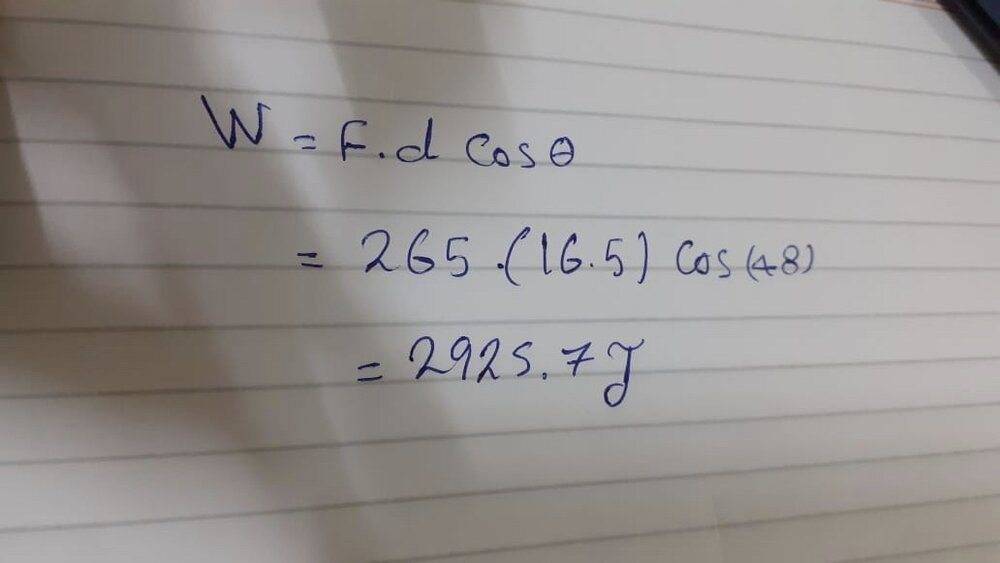 W = F.d cos θ
= 265 .(16.5) cos (48)
= 2925.7 J